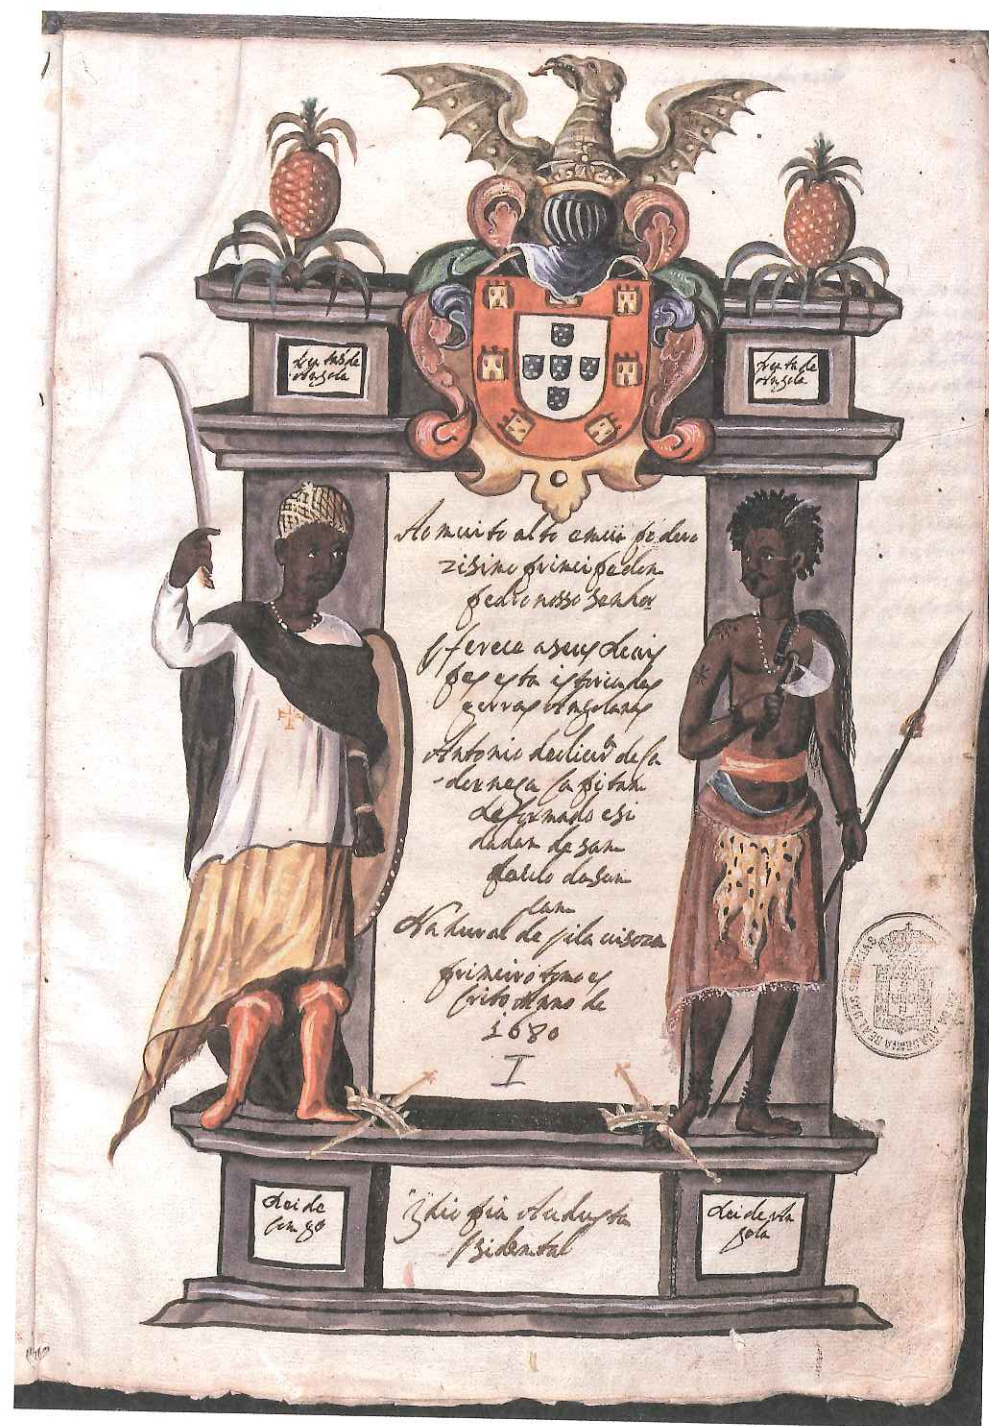 fruta de
Angola
fruta de
Angola
Ao muito alto emui podero
zisimo prinsipe dom
pedro nosso senhor
offerece a seus Reais
pes esta istoria das
gerras Angolanas
Antonio de oliurª de Ca
dornega Capitam
Reformado e si
dadam de Sam
paulo da Sun
cam
Natural de vila visoza
primeiro tomo es
crito o Anno de
1680
I
Rei de
Congo
Etiopia
osidental
Rei de An
gola
ACADEMIA REAL DAS SCIENCIAS